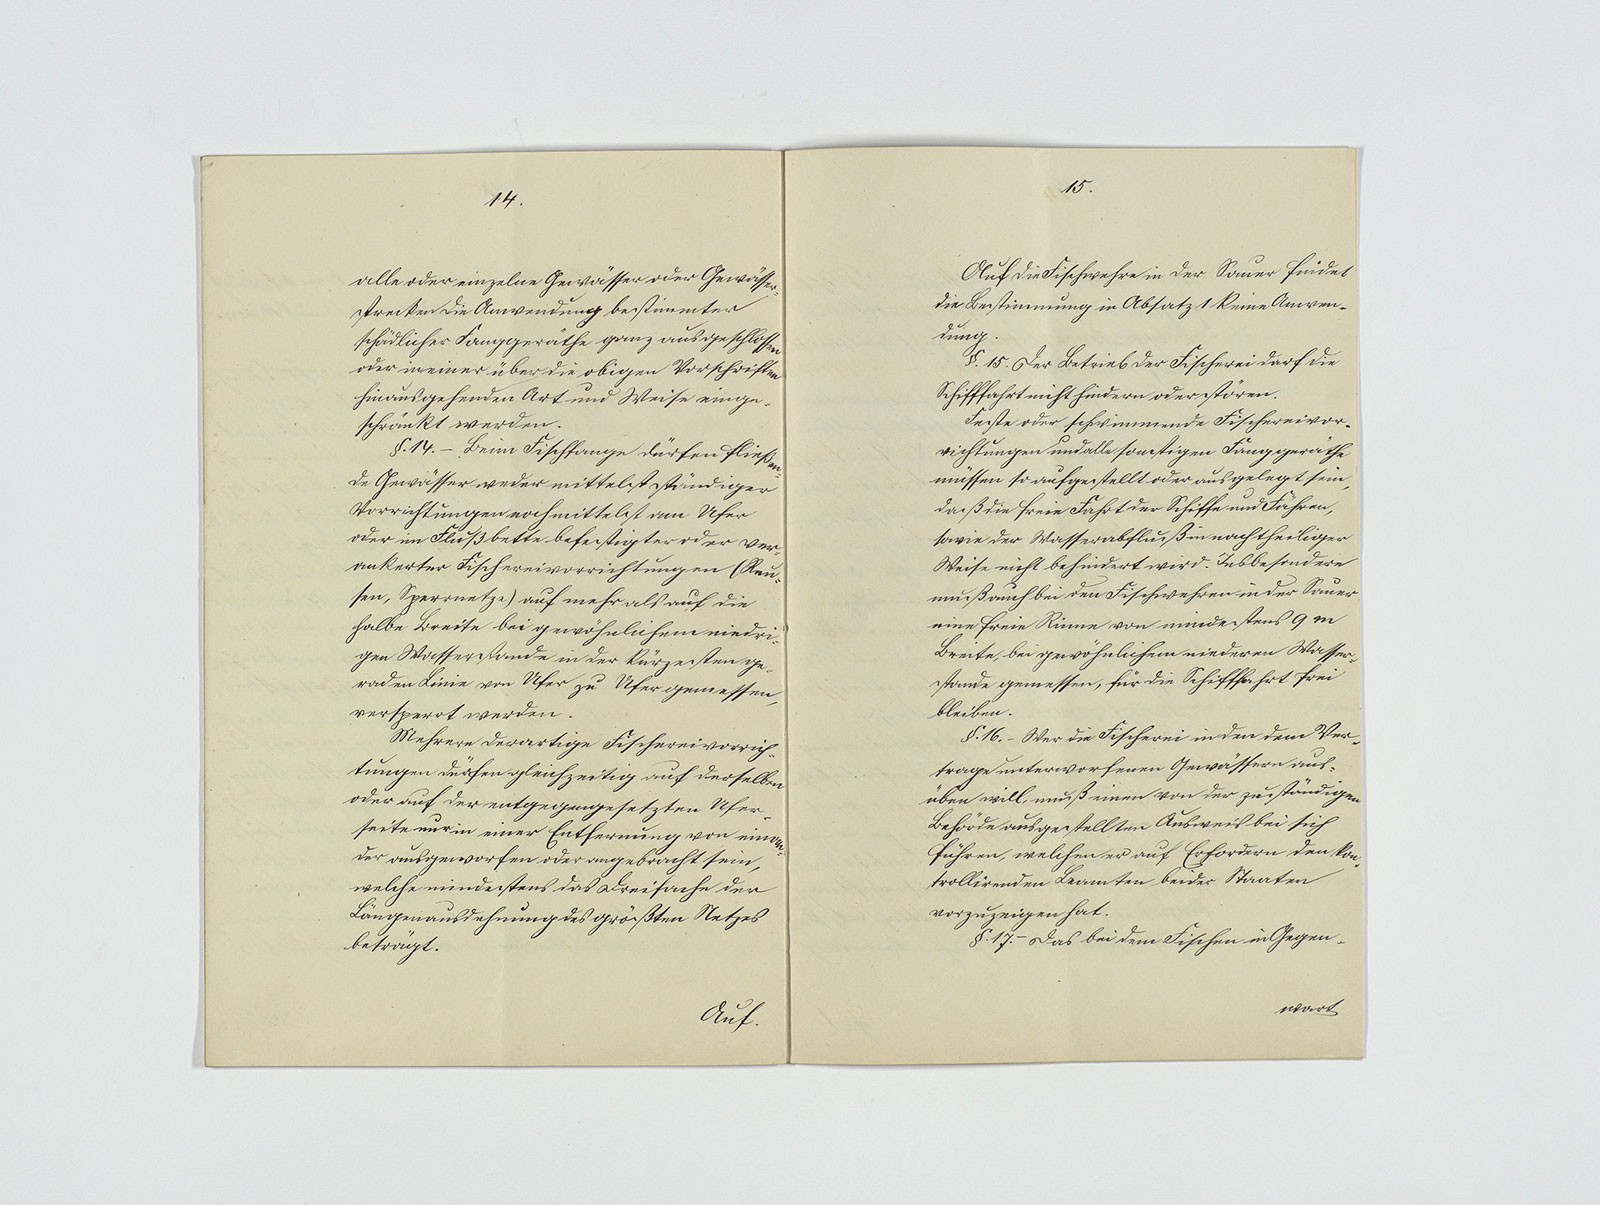 14.
alle oder einzelne Gewässer oder Gewässer-
strecken die Anwendung bestimmter
schädlicher Fanggeräthe ganz ausgeschlossen
oder in einer über die obigen Vorschriften
hinausgehenden Art und Weise einge-
schränkt werden.
§. 14. – Beim Fischfange dürfen fließen-
de Gewässer weder mittelst ständiger
Vorrichtungen noch mittelst am Ufer
oder im Flußbette befestigter oder ver-
ankerter Fischereivorrichtungen (Reu-
sen, Sperrnetze) auf mehr als auf die
halbe Breite bei gewöhnlichem niedri-
gen Wasserstande in der kürzesten ge-
raden Linie von Ufer zu Ufer gemessen,
versperrt werden.
Mehrere derartige Fischereivorrich-
tungen dürfen gleichzeitig auf derselben
oder auf der entgegengesetzten Ufer-
seite nur in einer Entfernung von einan-
der ausgeworfen oder angebracht sein,
welche mindestens das Dreifache der
Längenausdehnung des größten Netzes
beträgt.
Auf.
15.
Auf die Fischwehre in der Sauer findet
die Bestimmung in Absatz 1 keine Anwen-
dung.
§. 15. Der Betrieb der Fischerei darf die
Schifffahrt nicht hindern oder stören.
Feste oder schwimmende Fischereivor-
richtungen und alle sonstigen Fanggeräthe
müssen so aufgestellt oder ausgelegt sein,
daß die freie Fahrt der Schiffe und Fähren,
sowie der Wasserabfluß in nachtheiliger
Weise nicht behindert wird. Insbesondere
muß auch bei den Fischwehren in der Sauer
eine freie Rinne von mindestens 9 m
Breite, bei gewöhnlichem niederen Wasser-
stande gemessen, für die Schifffahrt frei
bleiben.
§. 16. – Wer die Fischerei in den dem Ver-
trage unterworfenen Gewässern aus-
üben will, muß einen von der zuständigen
Behörde ausgestellten Ausweis bei sich
führen, welchen er auf Erfordern den kon-
trollirenden Beamten beider Staaten
vorzuzeigen hat.
§. 17. – Das bei dem Fischen in Gegen-
wart